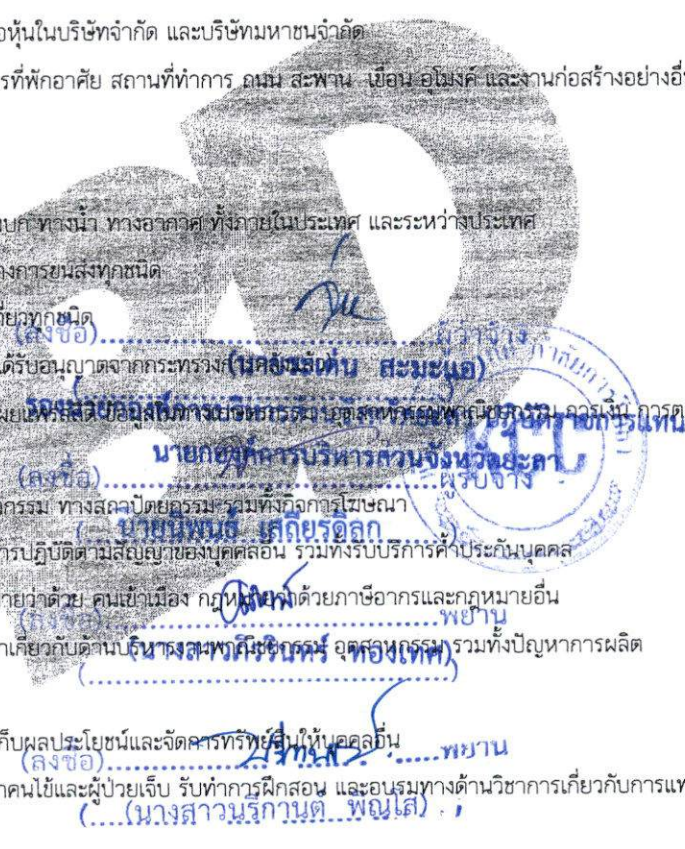 อหุ้นในบริษัทจำกัด และบริษัทมหาชนจำกัด
ารที่พักอาศัย สถานที่ทำการ ถนน สะพาน เขื่อน อุโมงค์ และงานก่อสร้างอย่างอื่น
งบก ทางน้ำ ทางอากาศ ทั้งภายในประเทศ และระหว่างประเทศ
างการขนส่งทุกชนิด
เที่ยวทุกชนิด
(ลงชื่อ)..............ผู้ว่าจ้าง
ได้รับอนุญาตจากกระทรวง
สะมะแอ)
อุตสาหกรรม พาณิชยกรรม การเงิน การต
นายกองค์การบริหารส่วนจังหวัดยะลา
(ลงชื่อ)..............ผู้รับจ้าง
กรรม ทางสถาปัตยกรรม รวมทั้งกิจการโฆษณา
(นายนิพนธ์ เสถียรดิลก)
การปฏิบัติตามสัญญาของบุคคลอื่น รวมทั้งรับบริการค้ำประกันบุคคล
ายว่าด้วย คนเข้าเมือง กฎหมายว่าด้วยภาษีอากรและกฎหมายอื่น
(ลงชื่อ)..............พยาน
าเกี่ยวกับด้านบริหารงานพาณิชยกรรม อุตสาหกรรม รวมทั้งปัญหาการผลิต
ทองเทศ)
ก็บผลประโยชน์และจัดการทรัพย์สินให้บุคคลอื่น
(ลงชื่อ)..............พยาน
าคนไข้และผู้ป่วยเจ็บ รับทำการฝึกสอน และอบรมทางด้านวิชาการเกี่ยวกับการแพ
(....(นางสาวนรีกานต์